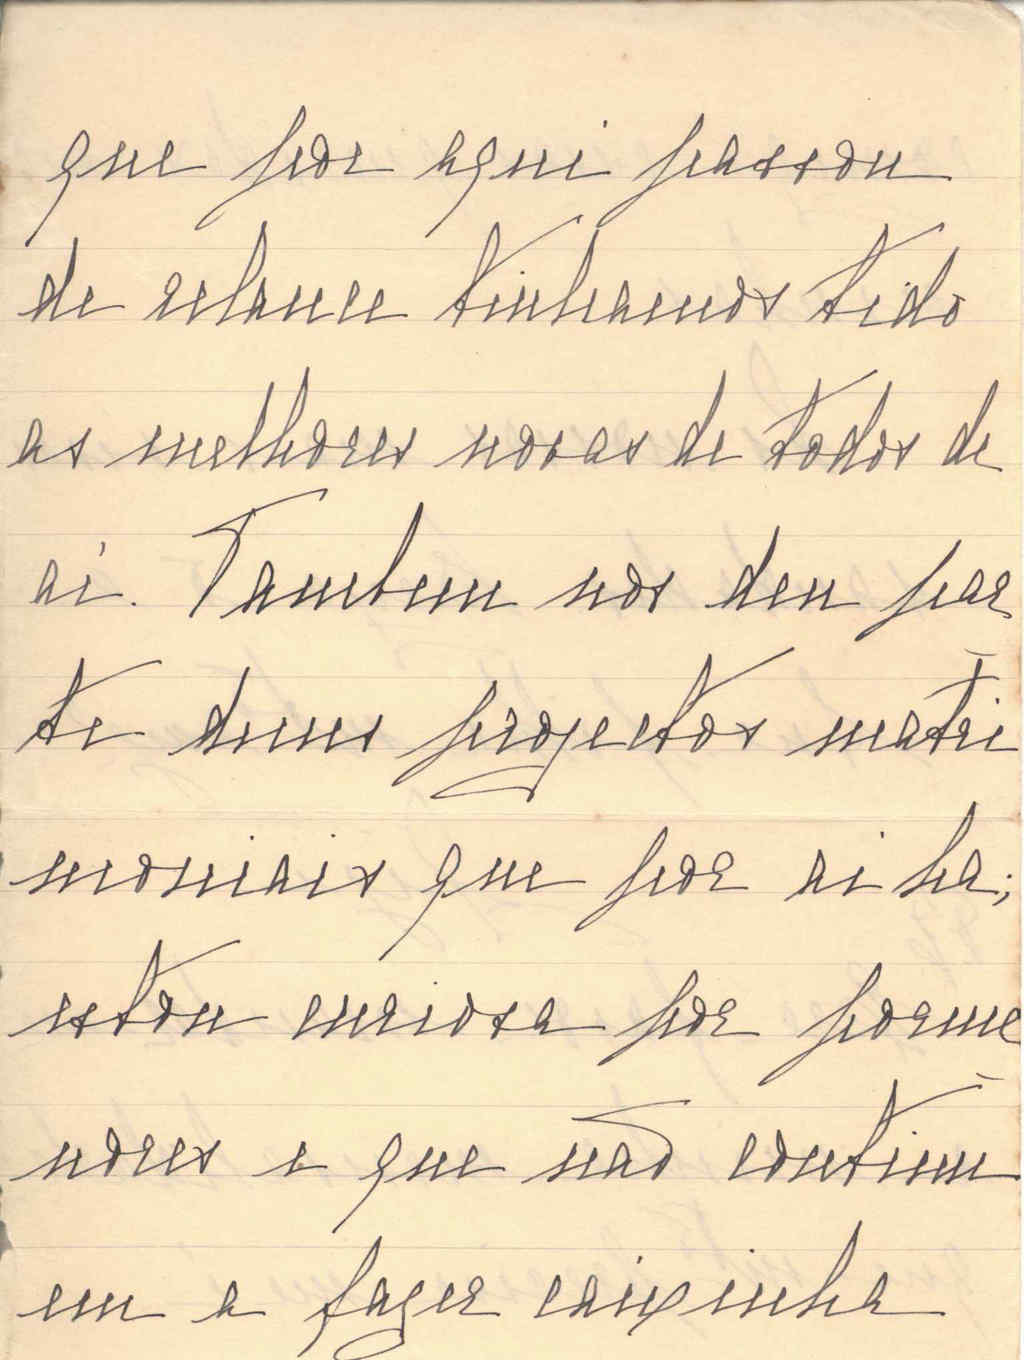 que por aqui passou
de relance tinhamos tido
as melhores novas de todos de
aí. Tambem nos deu par
te duns projectos matri
moniais que por ai ha;
estou curiosa por porme
nores e que não continu
em a fazer caixinha